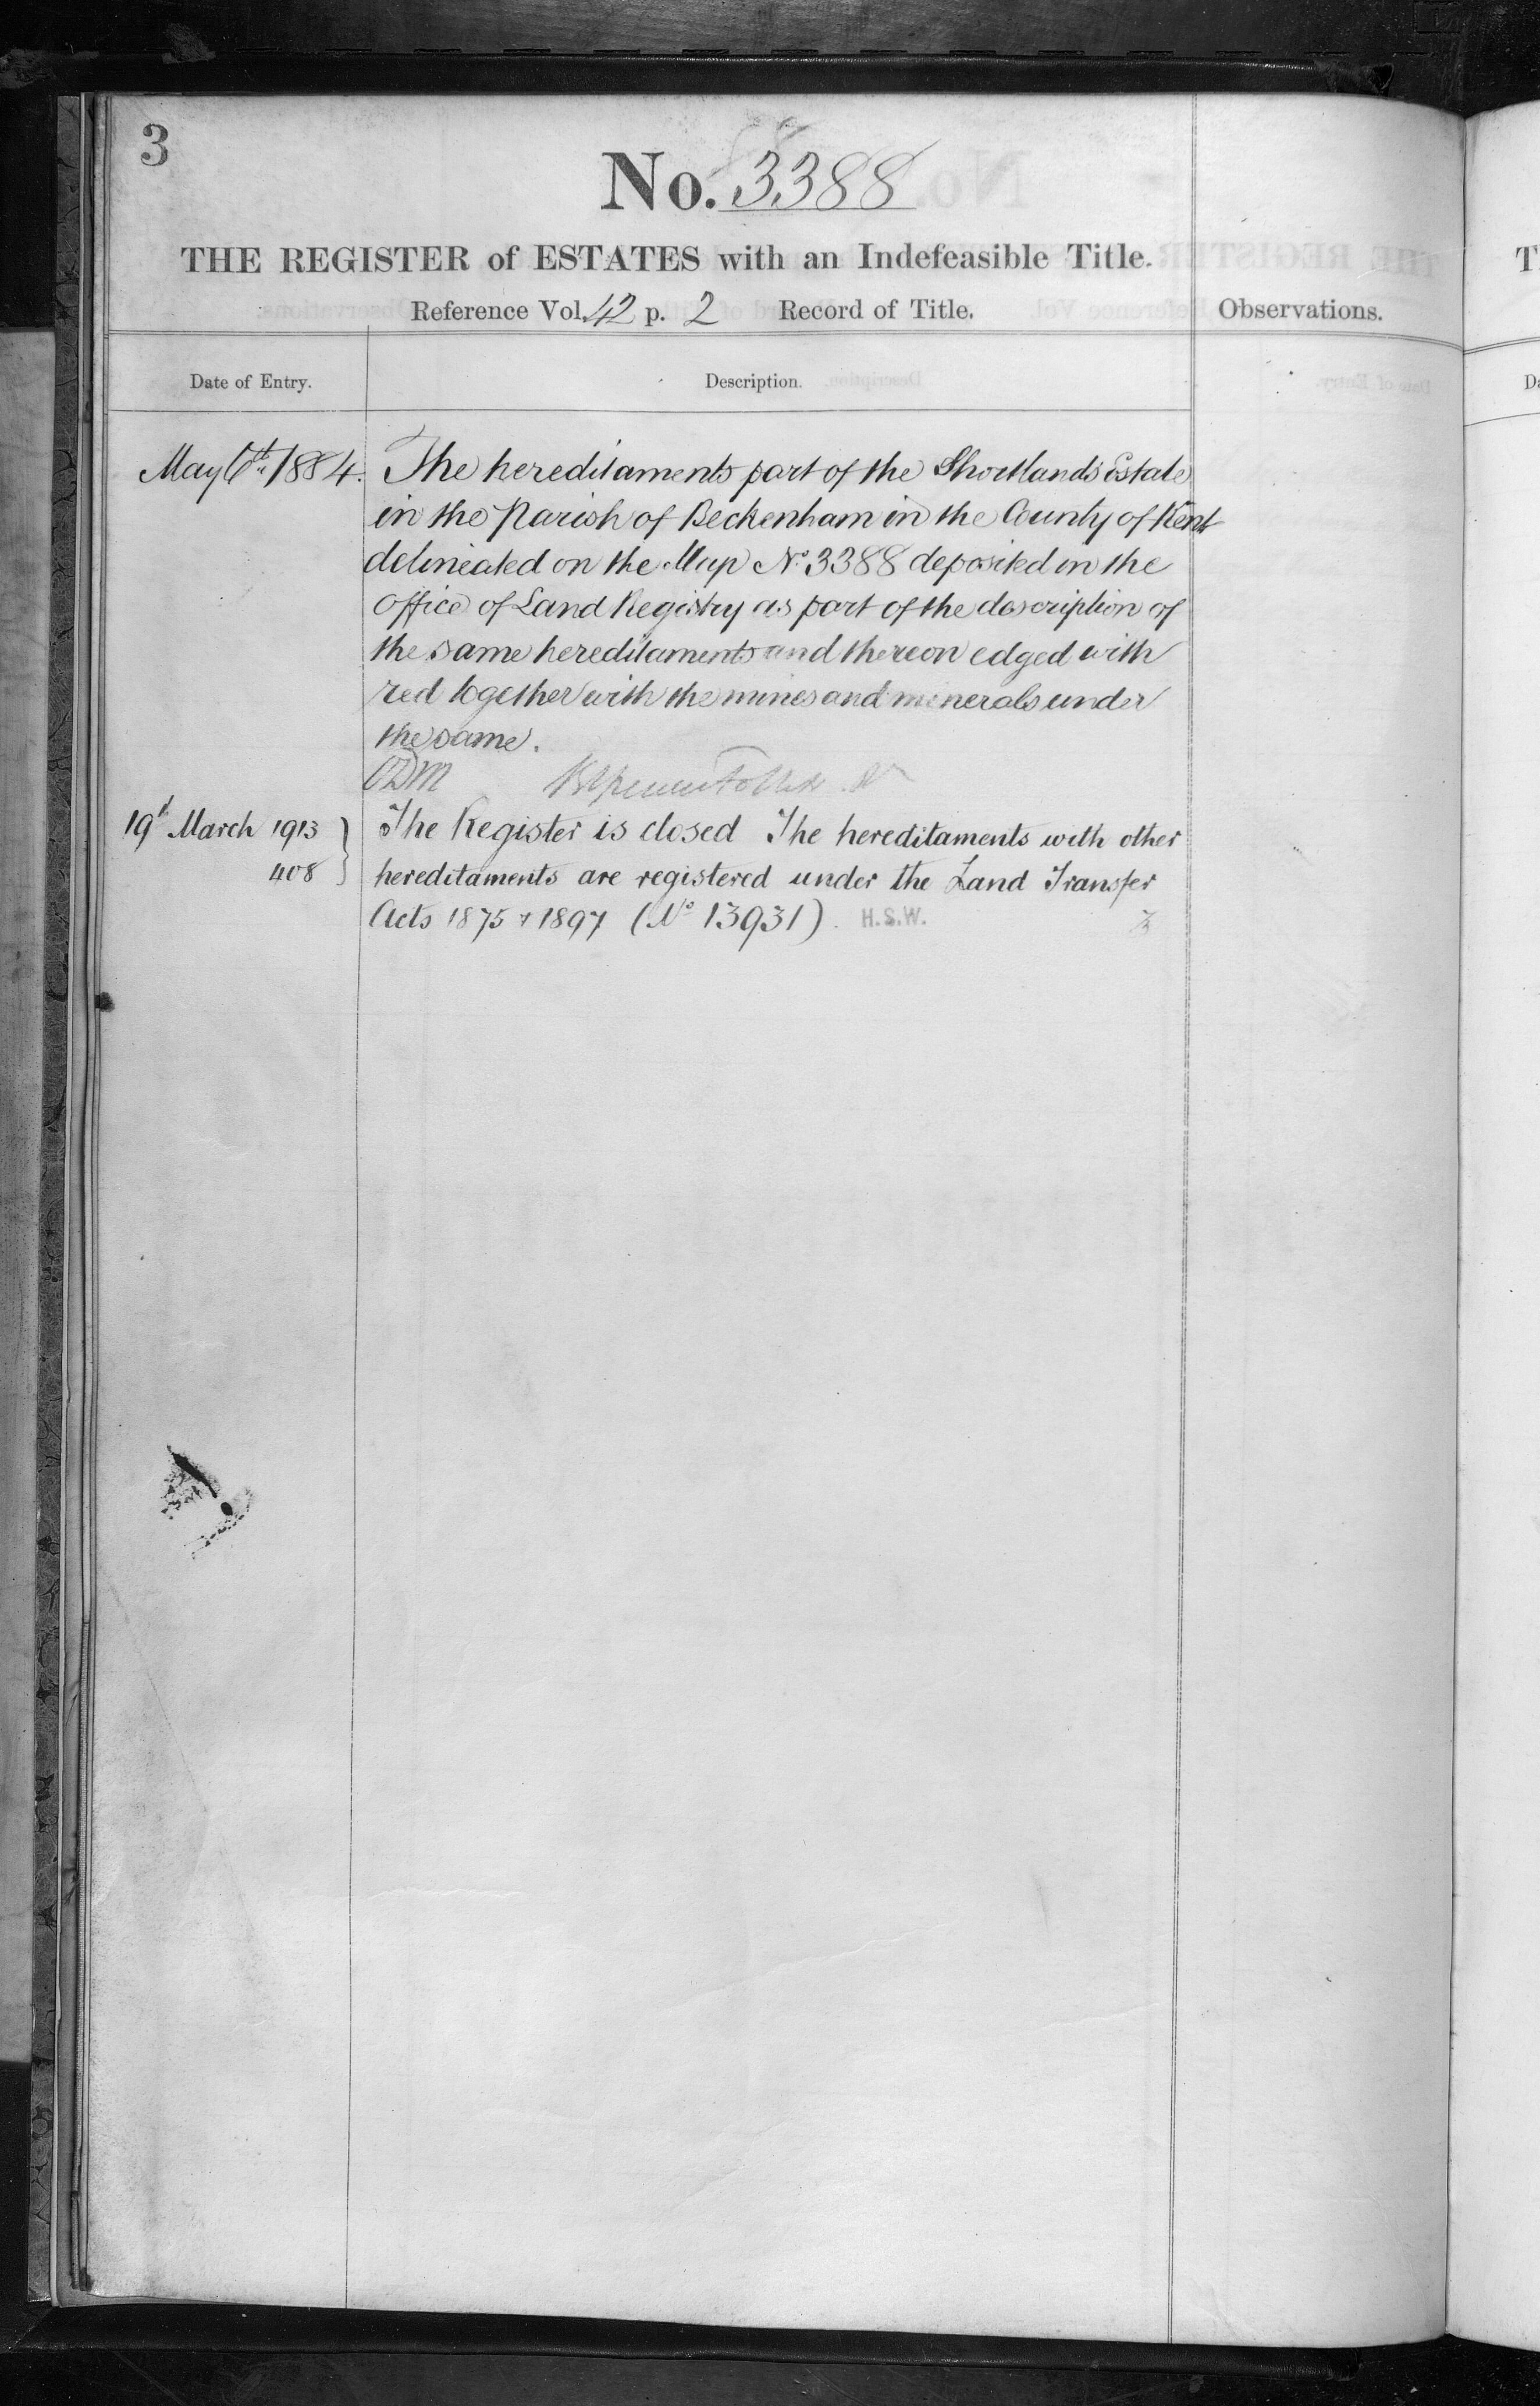 3
No. 3388
THE REGISTER of ESTATES with an Indefeasible Title.
Reference Vol. 42 p. 2 Record of Title.
Observations.
Date of Entry.
Description.
May 6th 1884.
The hereditaments part of the Shortlands Estate
in the Parish of Beckenham in the County of Kent
delineated on the Map No. 3388 deposited in the
Office of Land Registry as part of the description of
the same hereditaments and thereon edged with
red together with the mines and minerals under
the same.
19th March 1913
408
The Register is closed The hereditaments with other
hereditaments are registered under the Land Transfer
Acts 1875 & 1897 (No 13931). H.S.W.